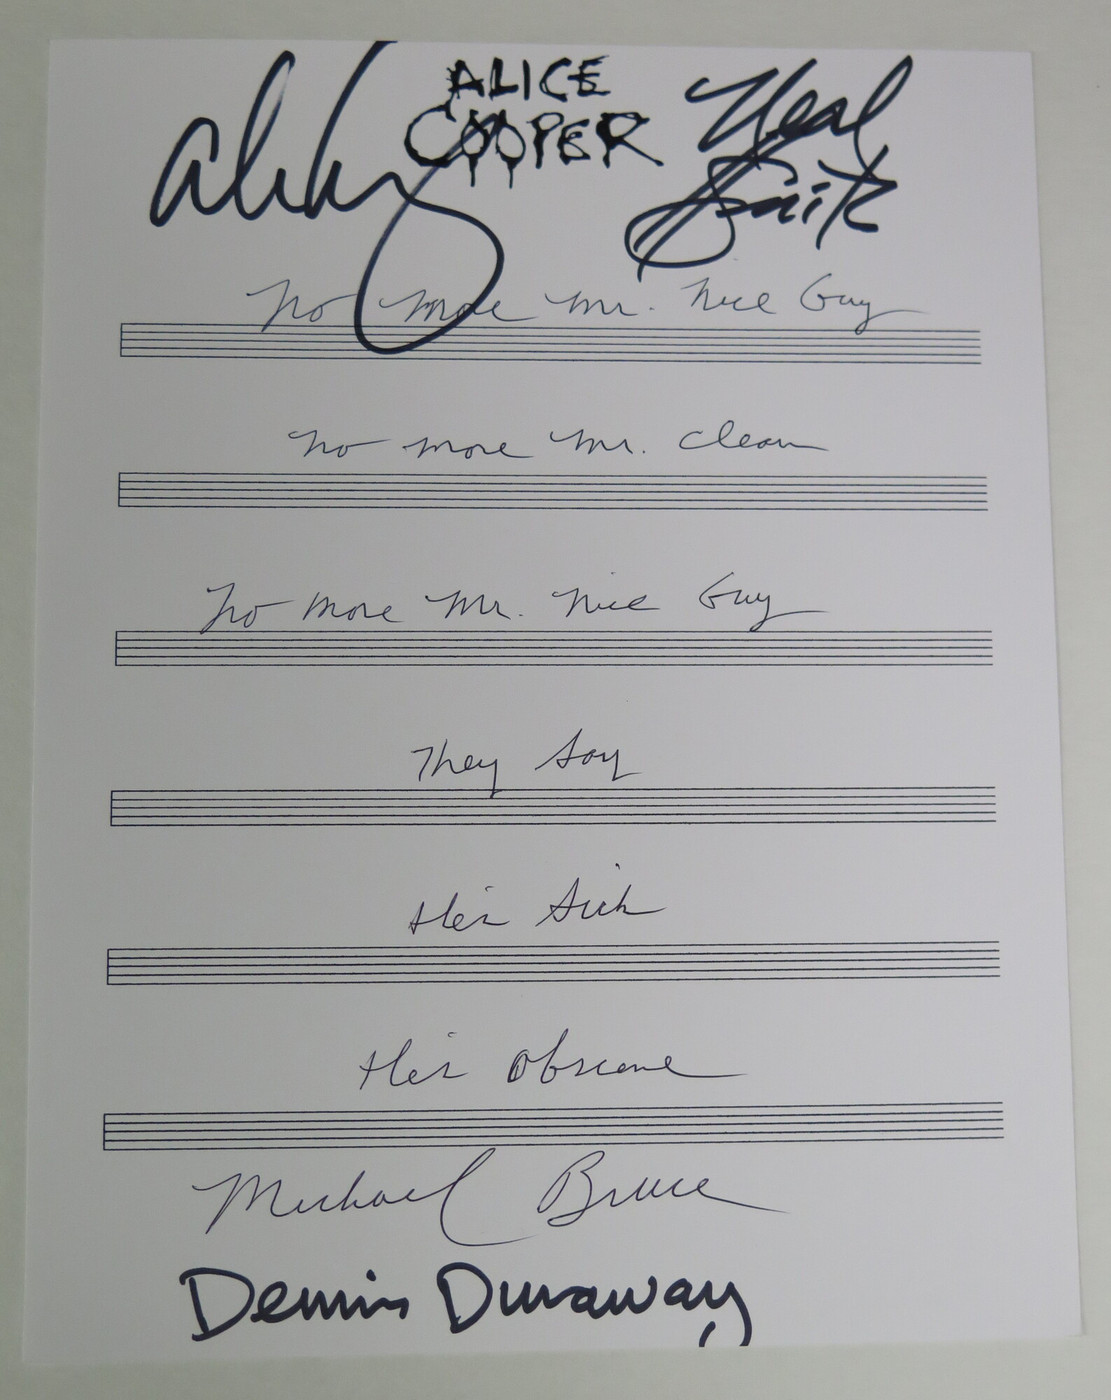 ALICE
COOPER
Alice
Neal
Smith
No More Mr. Nice Guy
No More Mr. Clean
No More Mr. Nice Guy
They Say
He's Sick
He's Obscene
Michael Bruce
Dennis Dunaway